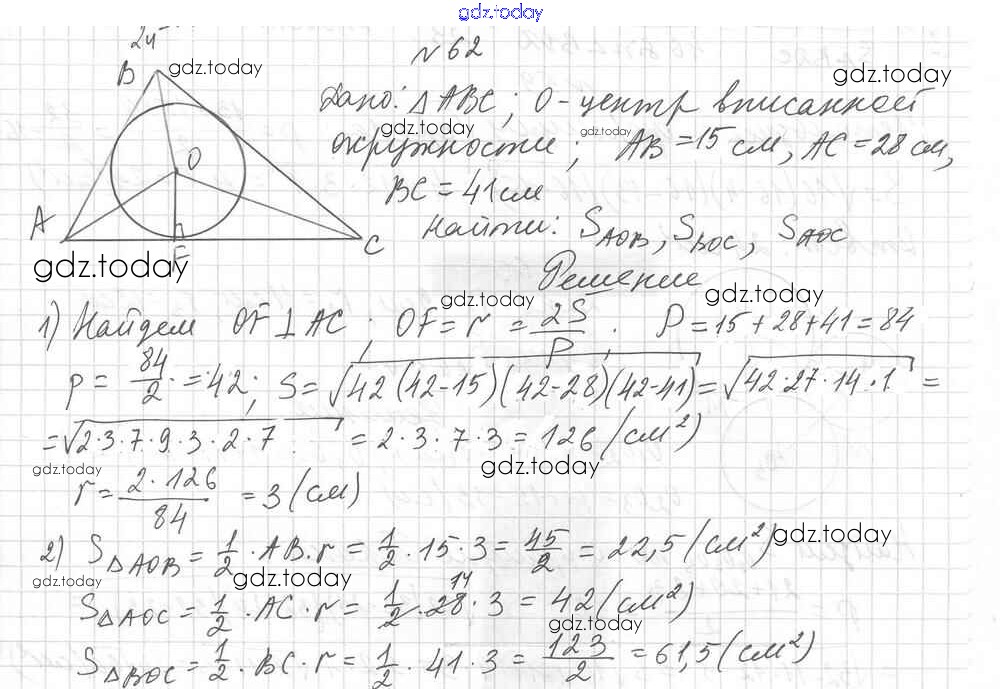 gdz.today
24
№ 62
B gdz.today
gdz.today
Дано: △ABC; O - центр вписанной
gdz.today gdz.today
окружности; AB = 15 см, AC = 28 см,
BC = 41 см
O
Найти: S_AOB, S_BOC, S_AOC
A C
F
gdz.today
Решение
gdz.today gdz.today
1) Найдем OF ⊥ AC; OF = r = 2S/P. P = 15 + 28 + 41 = 84
p = 84/2 = 42; S = √(42(42-15)(42-28)(42-41)) = √(42·27·14·1) =
= √(2·3·7·9·3·2·7) = 2·3·7·3 = 126 (см²)
gdz.today gdz.today
r = (2·126)/84 = 3 (см)
2) S△AOB = 1/2 · AB · r = 1/2 · 15 · 3 = 45/2 = 22,5 (см²) gdz.today
gdz.today gdz.today
14
S△AOC = 1/2 · AC · r = 1/2 · 28 · 3 = 42 (см²)
gdz.today
S△BOC = 1/2 · BC · r = 1/2 · 41 · 3 = 123/2 = 61,5 (см²)